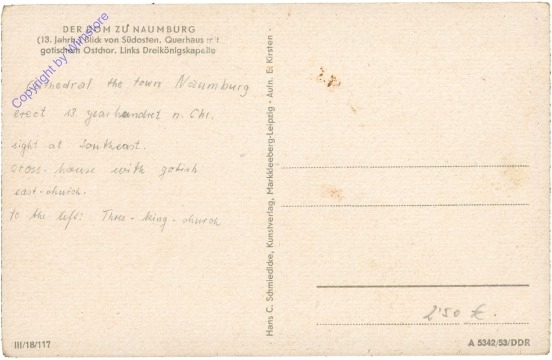 DER DOM ZU NAUMBURG
(13. Jahrh.) Blick von Südosten. Querhaus mit
gotischem Ostchor. Links Dreikönigskapelle
Copyright by Winstore
Cathedral the town Naumburg
erect 13. yearhundret n. Chr.
sight at Southeast.
cross-house with gotish
east-church.
to the left: Three-king-church
Hans C. Schmiedicke, Kunstverlag, Markkleeberg-Leipzig - Aufn. E. Kirsten -
2'50 €.
III/18/117
A 5342/53/DDR